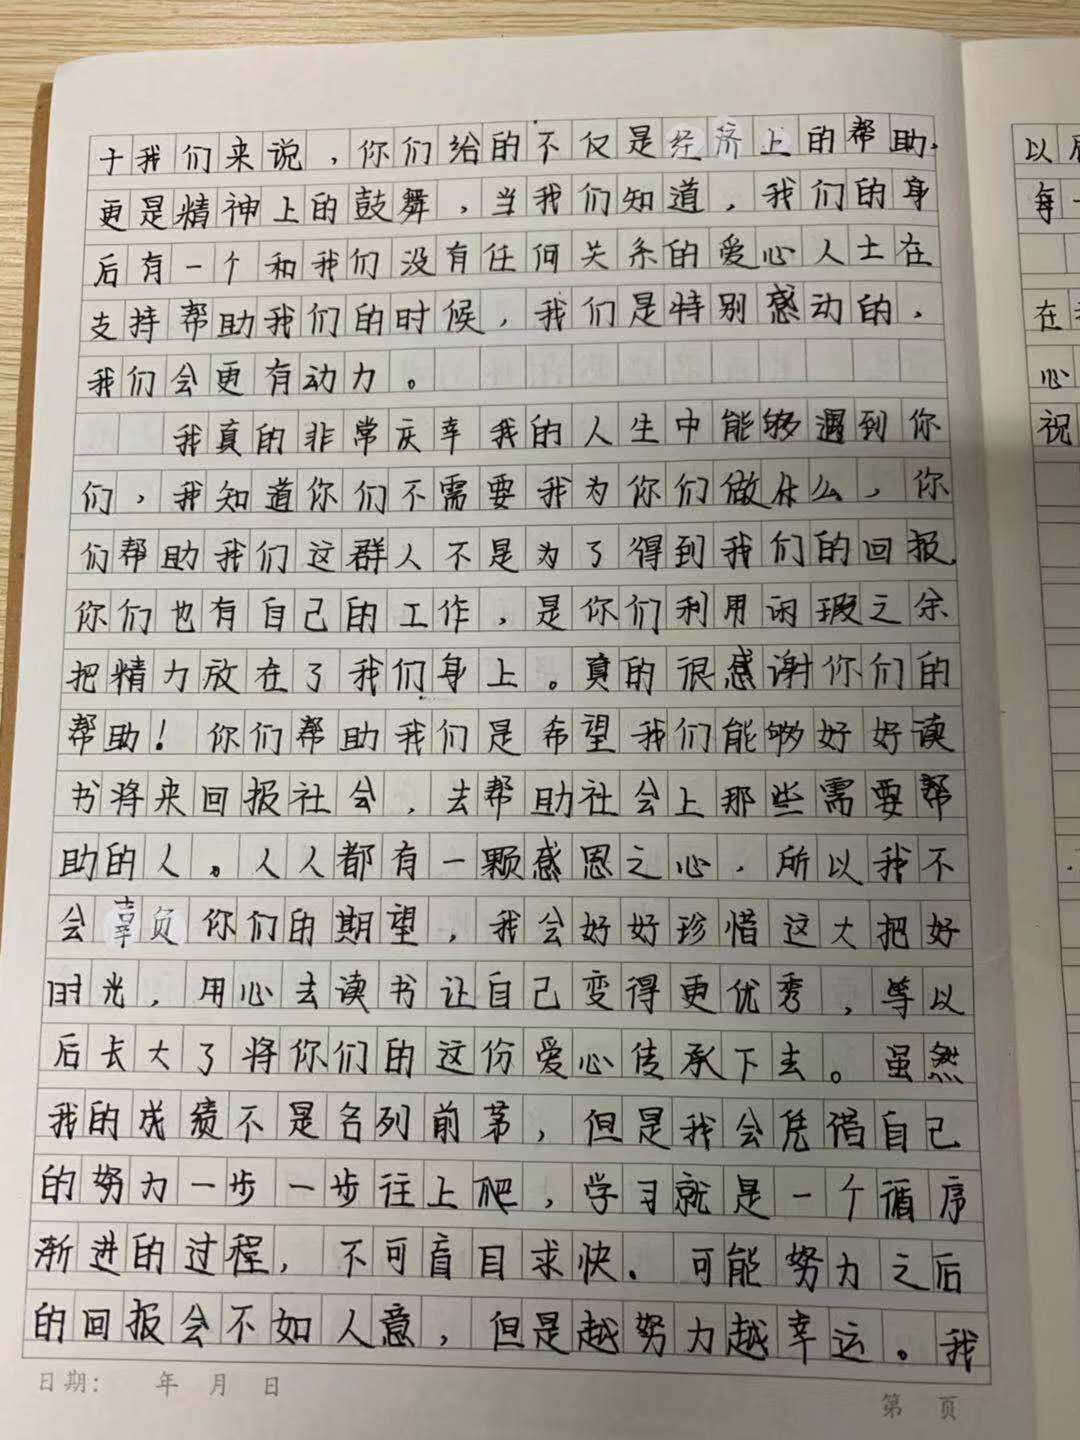 于我们来说，你们给的不仅是经济上的帮助.
更是精神上的鼓舞，当我们知道，我们的身
后有一个和我们没有任何关系的爱心人士在
支持帮助我们的时候，我们是特别感动的，
我们会更有动力。
我真的非常庆幸我的人生中能够遇到你
们，我知道你们不需要我为你们做什么，你
们帮助我们这群人不是为了得到我们的回报，
你们也有自己的工作，是你们利用闲瑕之余
把精力放在了我们身上。真的很感谢你们的
帮助！你们帮助我们是希望我们能够好好读
书将来回报社会，去帮助社会上那些需要帮
助的人。人人都有一颗感恩之心，所以我不
会辜负你们的期望，我会好好珍惜这大把好
时光，用心去读书让自己变得更优秀，等以
后长大了将你们的这份爱心传承下去。虽然
我的成绩不是名列前茅，但是我会凭借自己
的努力一步一步往上爬，学习就是一个循序
渐进的过程，不可盲目求快．可能努力之后
的回报会不如人意，但是越努力越幸运。我
日期：　年　月　日
第　页
以
每一
在
心
祝